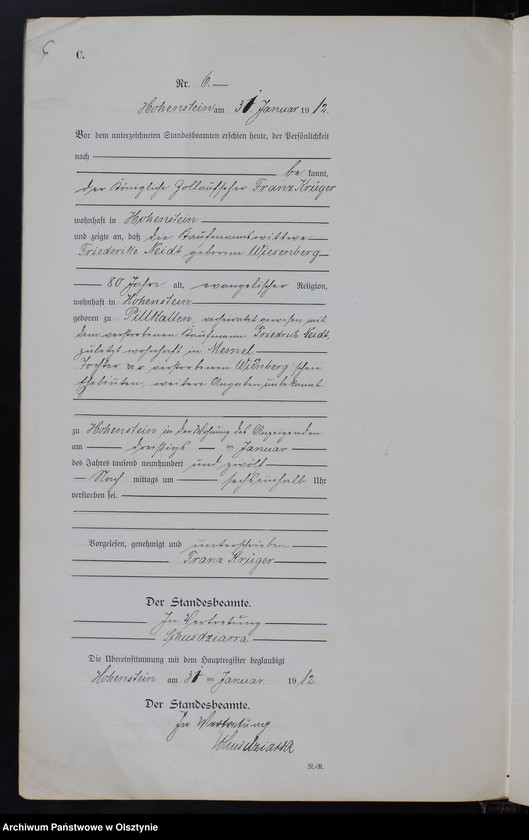 C.
Nr. 6.
Hohenstein am 31 Januar 1912.
Vor dem unterzeichneten Standesbeamten erschien heute, der Persönlichkeit
nach
be kannt,
der Königliche Zollaufseher Franz Krüger
wohnhaft in Hohenstein
und zeigte an, daß die Kaufmannswittwe
Friederike Neidt geborene Wiesenberg
80 Jahre alt, evangelischer Religion,
wohnhaft in Hohenstein
geboren zu Pillkallen, verheiratet gewesen mit
dem verstorbenen Kaufmann Friedrich Neidt,
zuletzt wohnhaft in Memel
Tochter der verstorbenen schen
Eheleuten, weitere Angaben unbekannt
zu Hohenstein in der Wohnung des Anzeigenden
am dreißigs ten Januar
des Jahres tausend neunhundert und zwölf
Nach mittags um sechseinhalb Uhr
verstorben sei.
Vorgelesen, genehmigt und unterschrieben
Franz Krüger
Der Standesbeamte.
In Vertretung
Die Übereinstimmung mit dem Hauptregister beglaubigt
Hohenstein am 31 ten Januar 1912.
Der Standesbeamte.
In Vertretung
N.-R.
Archiwum Państwowe w Olsztynie